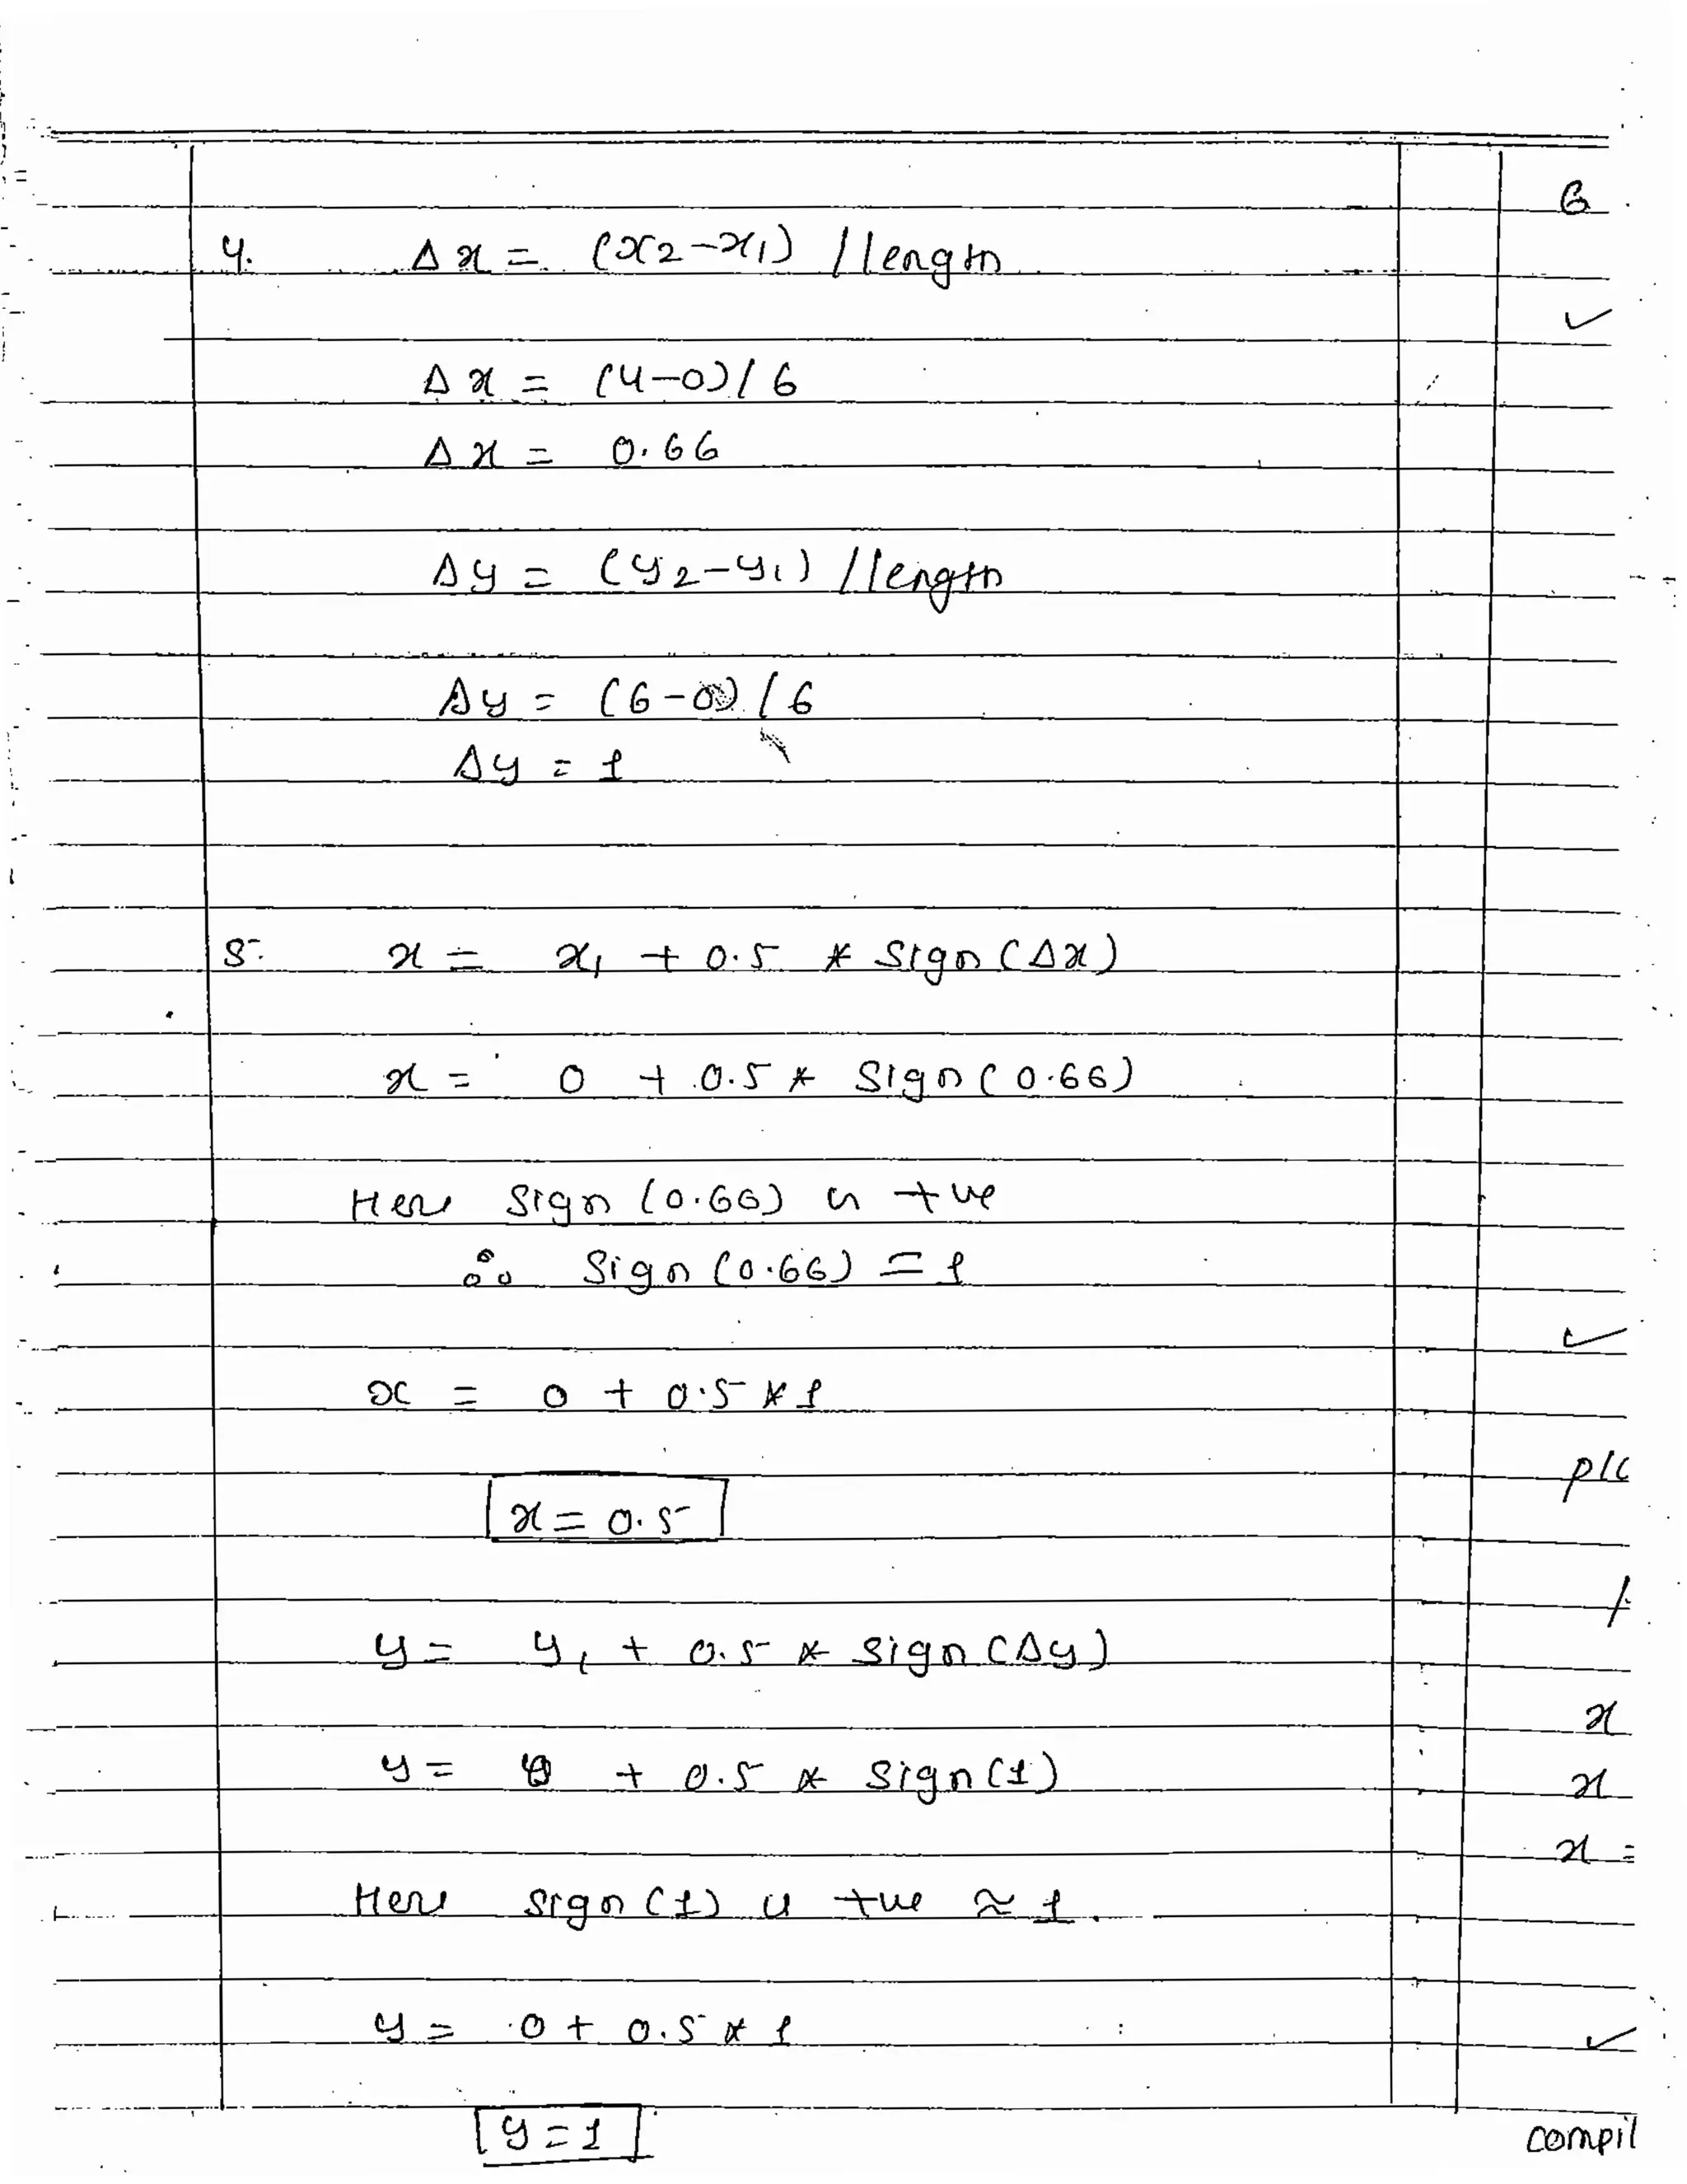 4. Δx = (x2-x1) / length
Δx = (4-0) / 6
Δx = 0.66
Δy = (y2-y1) / length
Δy = (6-0) / 6
Δy = 1
5. x = x1 + 0.5 * Sign (Δx)
x = 0 + 0.5 * Sign (0.66)
Here Sign (0.66) is +ve
∴ Sign (0.66) = 1
x = 0 + 0.5 * 1
x = 0.5
y = y1 + 0.5 * Sign (Δy)
y = 0 + 0.5 * Sign (1)
Here Sign (1) is +ve ≈ 1.
y = 0 + 0.5 * 1
y = 1
6
✓
✓
x
x
x =
✓
compil